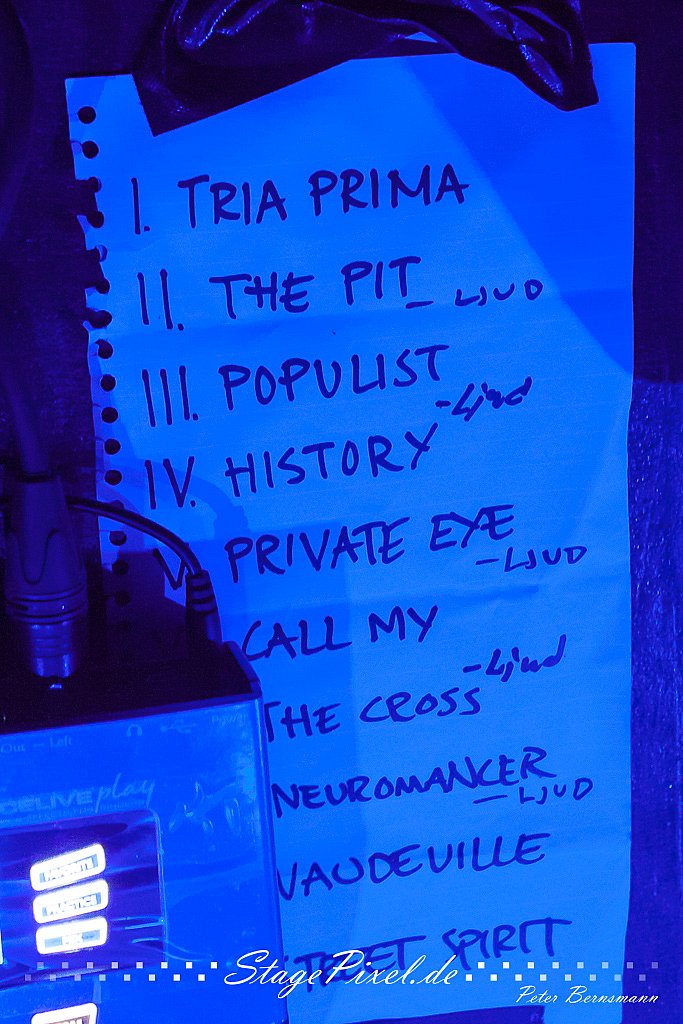 I. TRIA PRIMA
II. THE PIT
- LJUD
III. POPULIST
- Ljud
IV. HISTORY
V. PRIVATE EYE
- LJUD
CALL MY
- Ljud
THE CROSS
NEUROMANCER
- LJUD
VAUDEVILLE
STREET SPIRIT
Out - Left
Power
CELIVE play
FAVORITE
PRACTICE
StagePixel.de
Peter Bernsmann